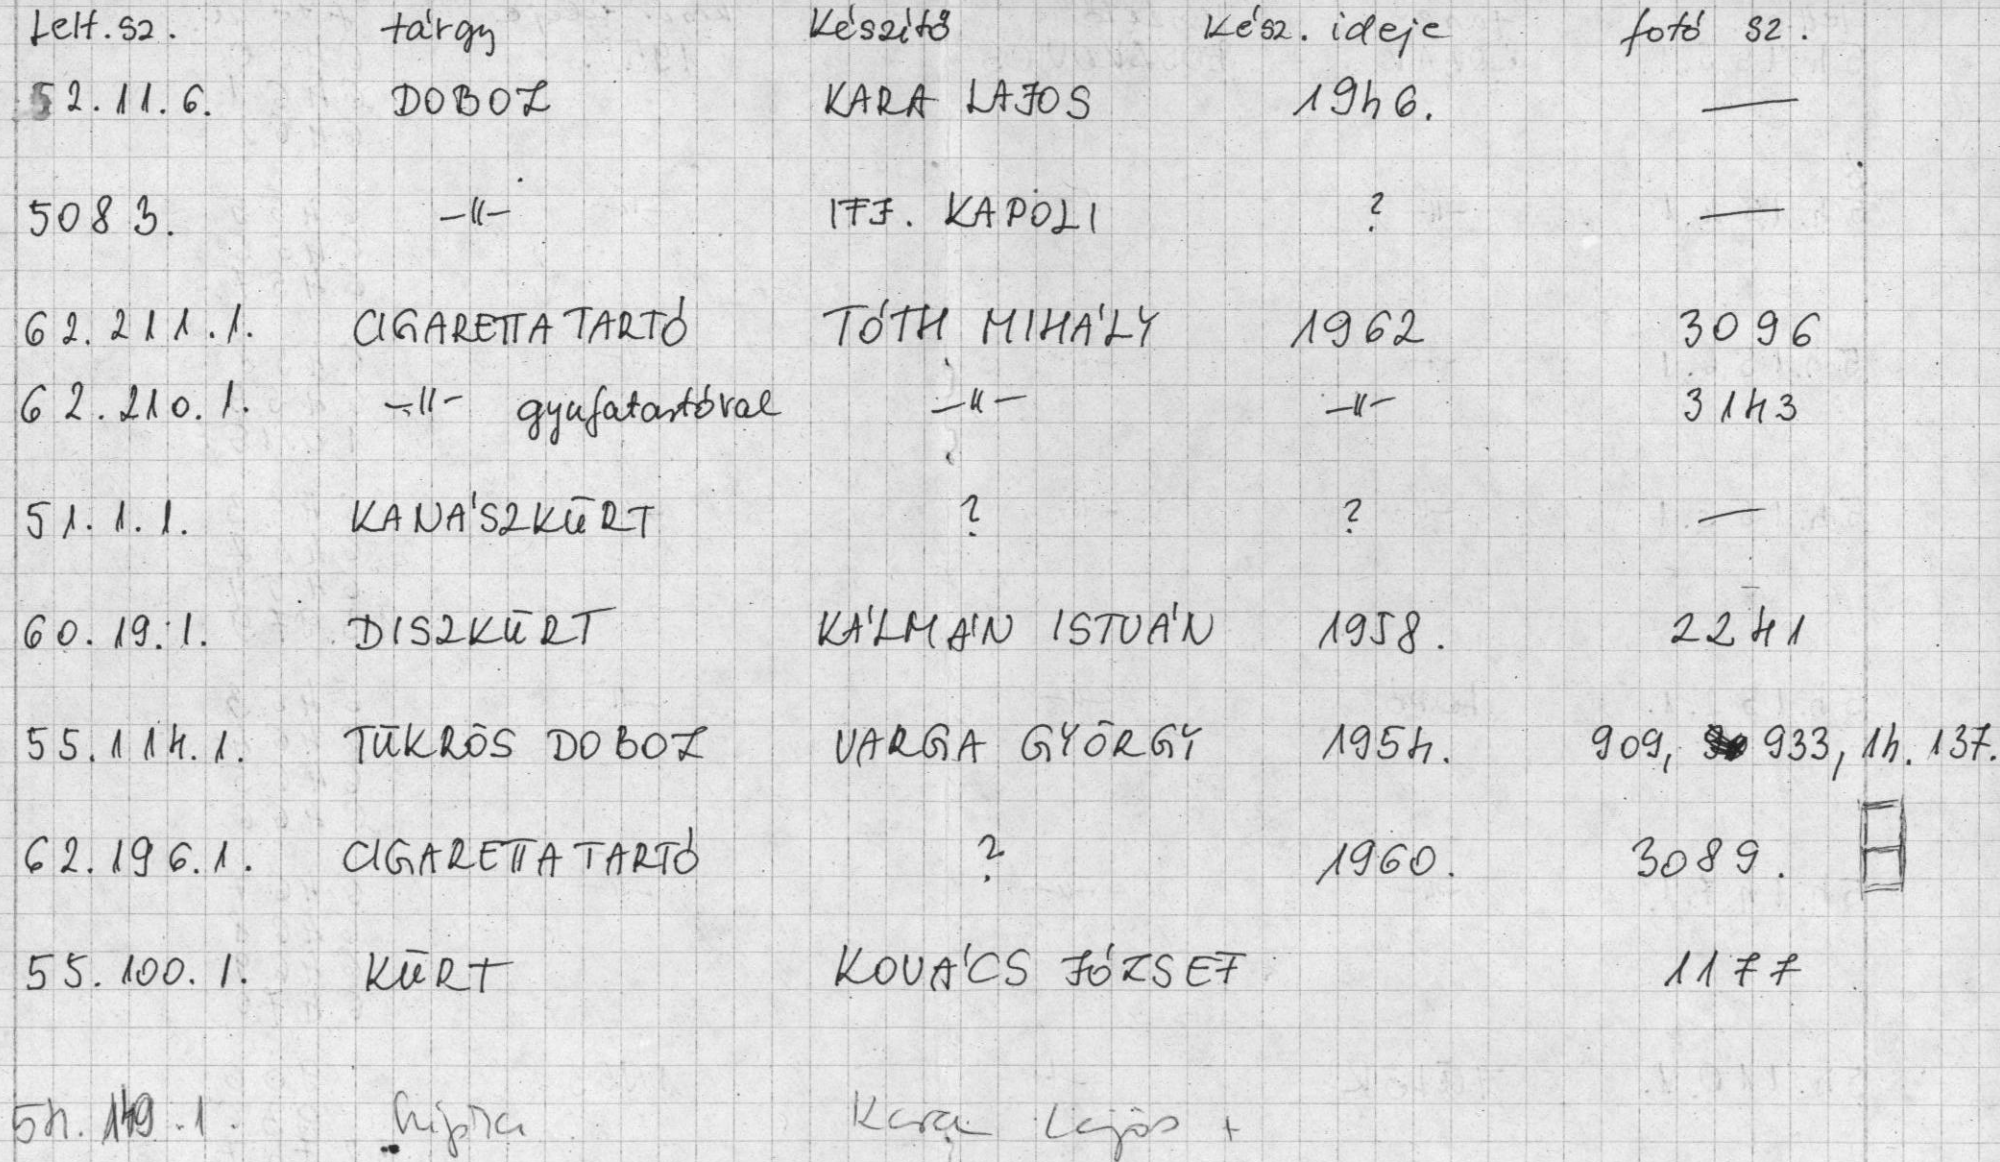 Lelt.sz. tárgy Készítő Kész. ideje fotó sz.
52.11.6. DOBOZ KARA LAJOS 1946. —
5083. —"— IFJ. KAPOLI ? —
62.211.1. CIGARETTATARTÓ TÓTH MIHÁLY 1962 3096
62.210.1. —"— gyufatartóval —"— —"— 3143
51.1.1. KANÁSZKÜRT ? ? —
60.19.1. DISZKÜRT KÁLMÁN ISTVÁN 1958. 2241
55.114.1. TÜKRÖS DOBOZ VARGA GYÖRGY 1954. 909, 933, 14.137.
62.196.1. CIGARETTATARTÓ ? 1960. 3089.
55.100.1. KÜRT KOVÁCS JÓZSEF 1177
54.149.1. Kara Lajos +